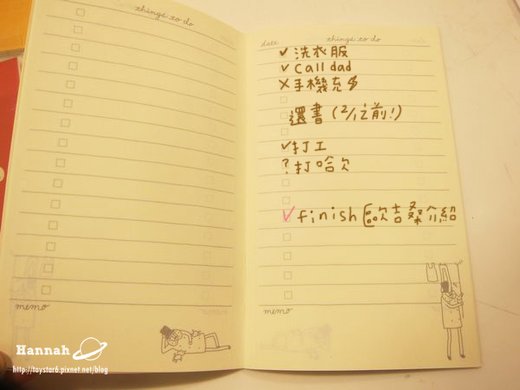 things to do
memo
date things to do
✓ 洗衣服
✓ Call dad
✗ 手機充
還書 (2/1之前!)
✓ 打工
? 打哈欠
✓ finish 歐吉桑介紹
memo
Hannah
http://taystar6.pixnet.net/blog